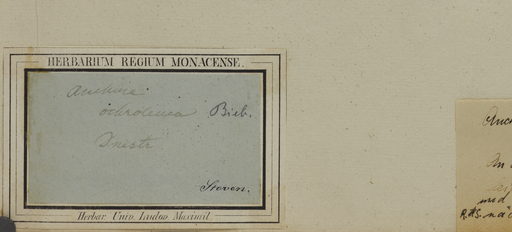 HERBARIUM REGIUM MONACENSE.
Anchusa
ochroleuca Bieb.
Dnestr
Steven.
Herbar. Univ. Ludov. Maximil.
Anch